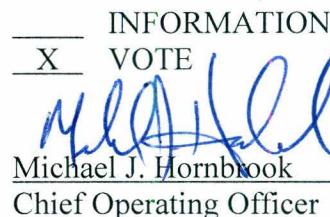 ____ INFORMATION
X VOTE
Michael J. Hornbrook
Chief Operating Officer